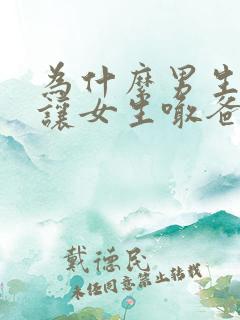 為什麼男生
讓女生喊爸
戴德民
未经同意禁止转载